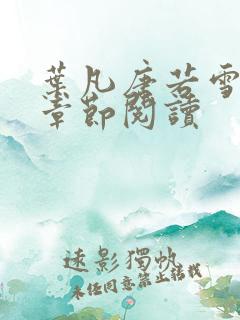 葉凡唐若雪
章節閱讀
遠影獨帆
未經同意禁止轉載